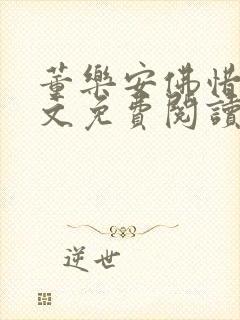 董樂安佛惜
文免費閱讀
逆世